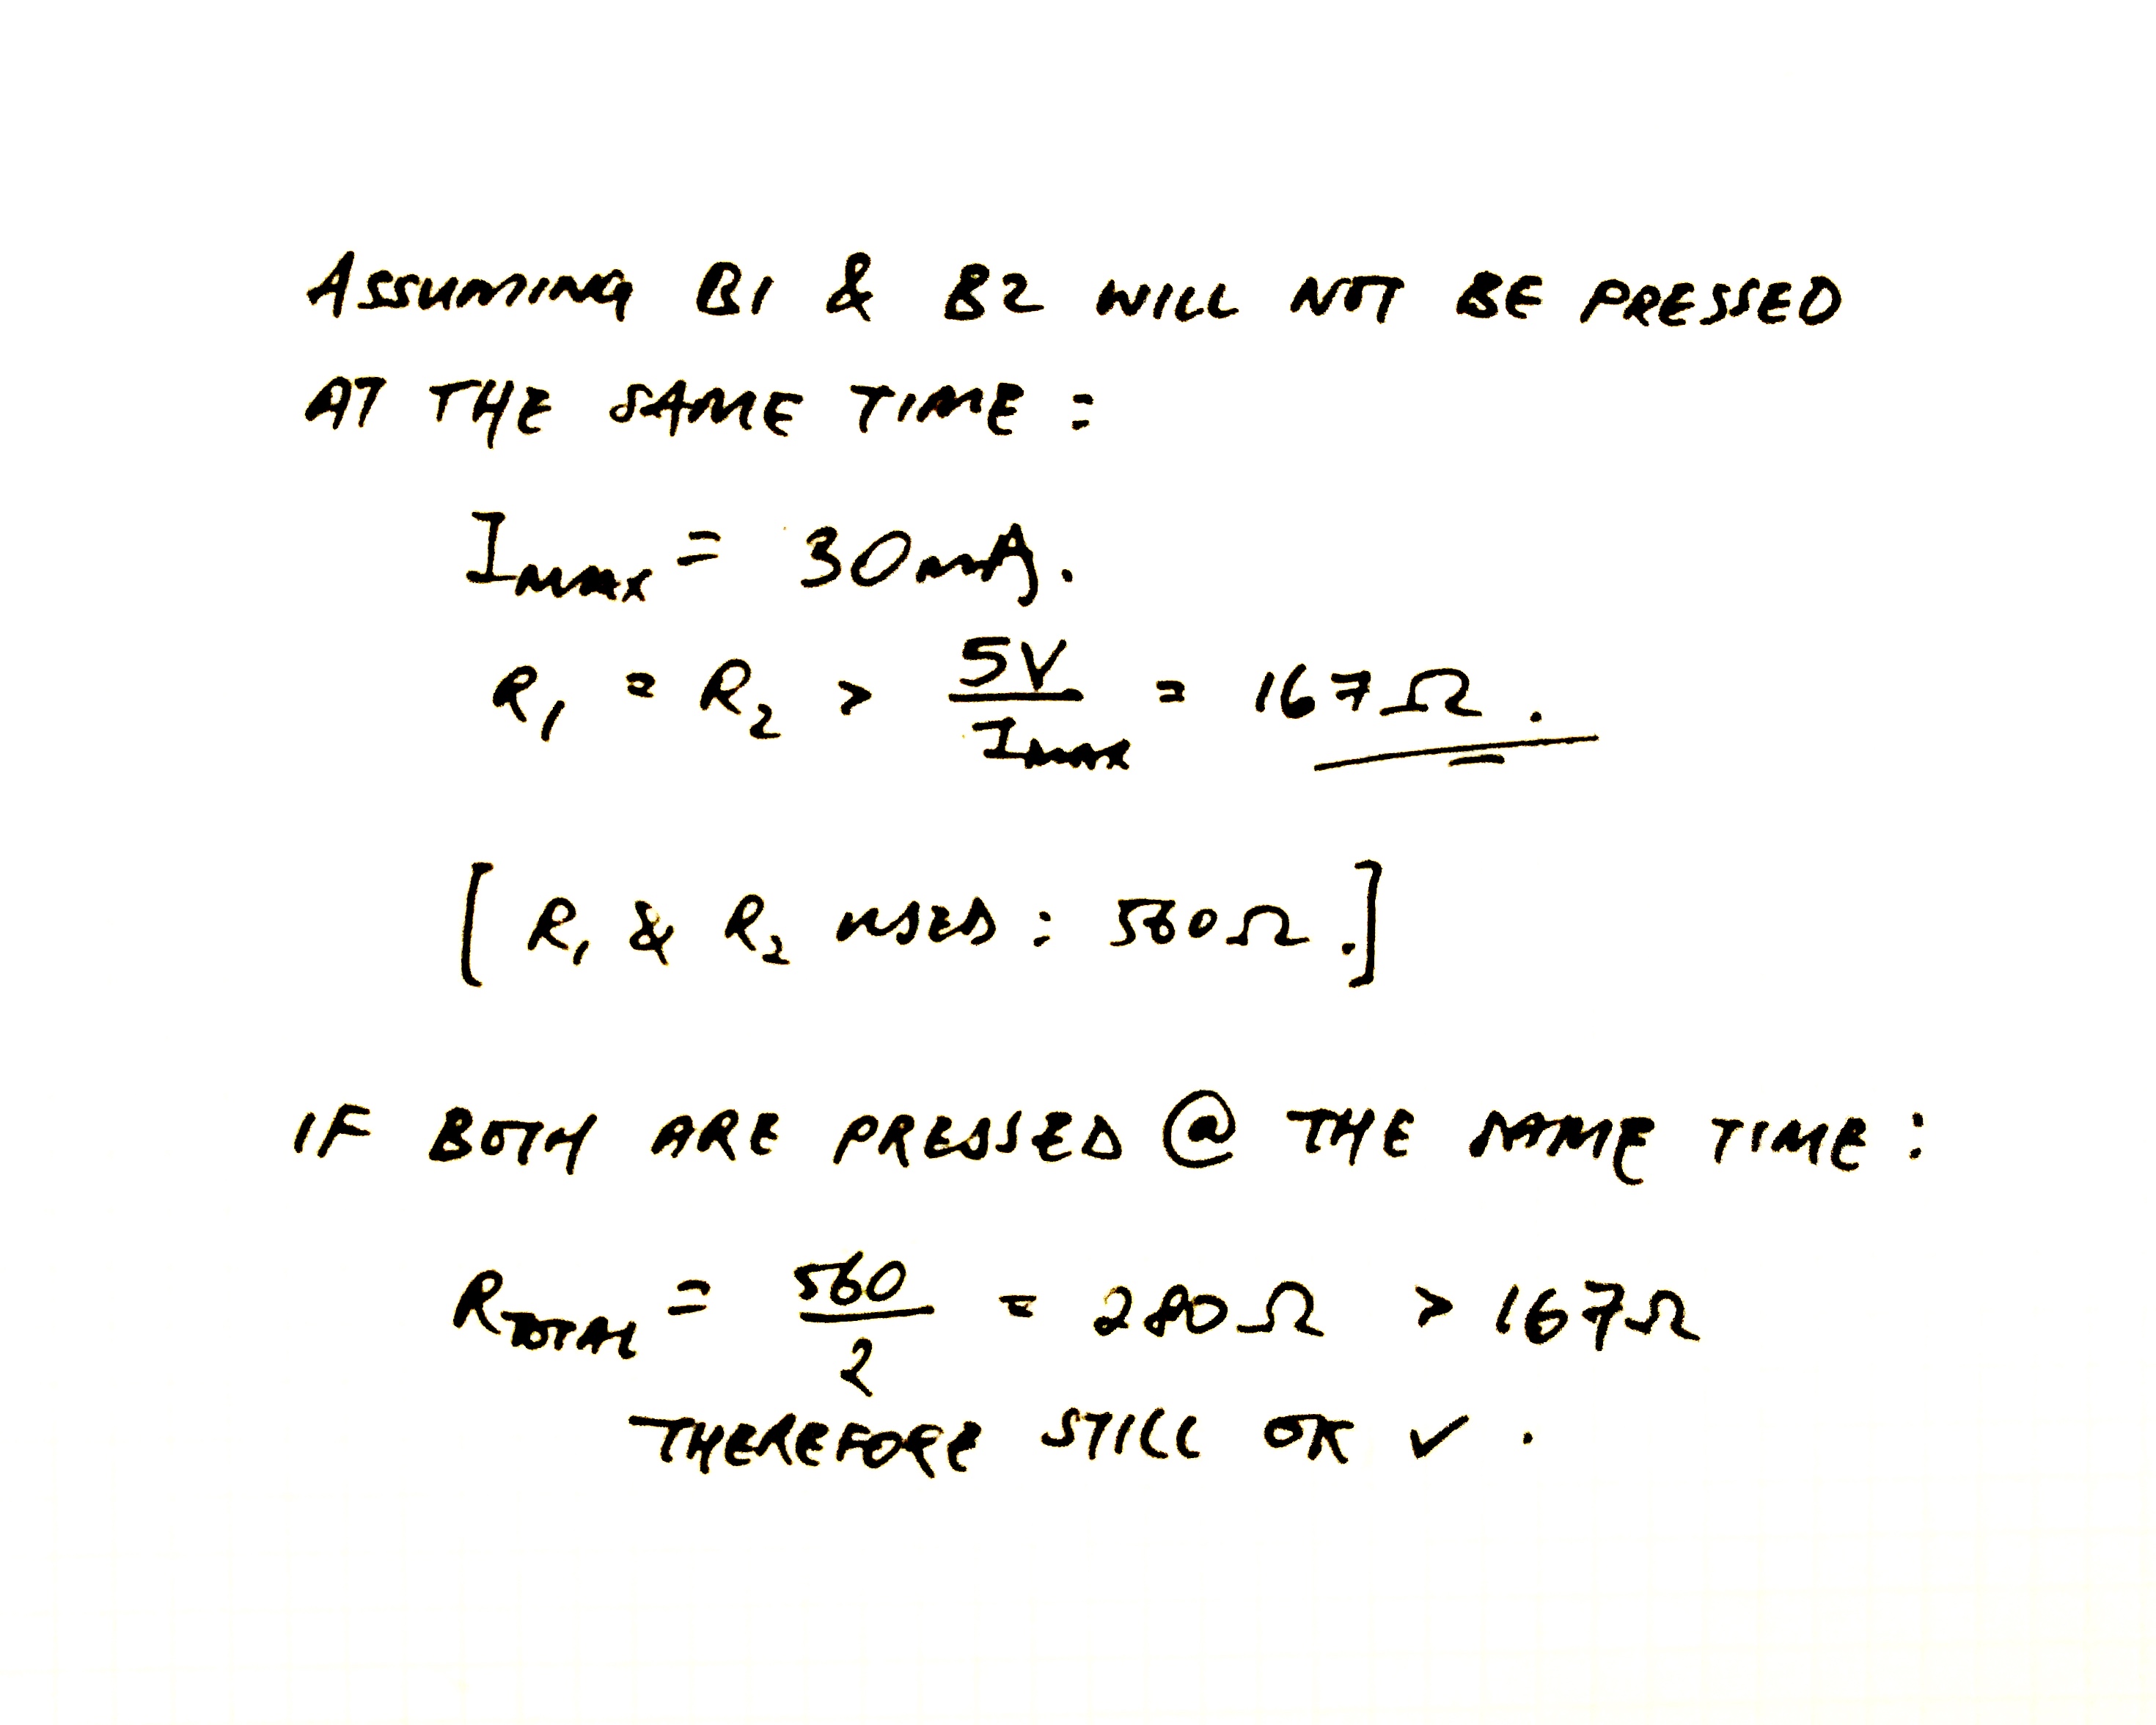 ASSUMING B1 & B2 WILL NOT BE PRESSED
AT THE SAME TIME :
Imax = 30mA.
R1 = R2 > 5V/Imax = 167Ω.
[R1 & R2 USED : 560Ω.]
IF BOTH ARE PRESSED @ THE SAME TIME :
RTOTAL = 560/2 = 280Ω > 167Ω
THEREFORE STILL OK ✓.